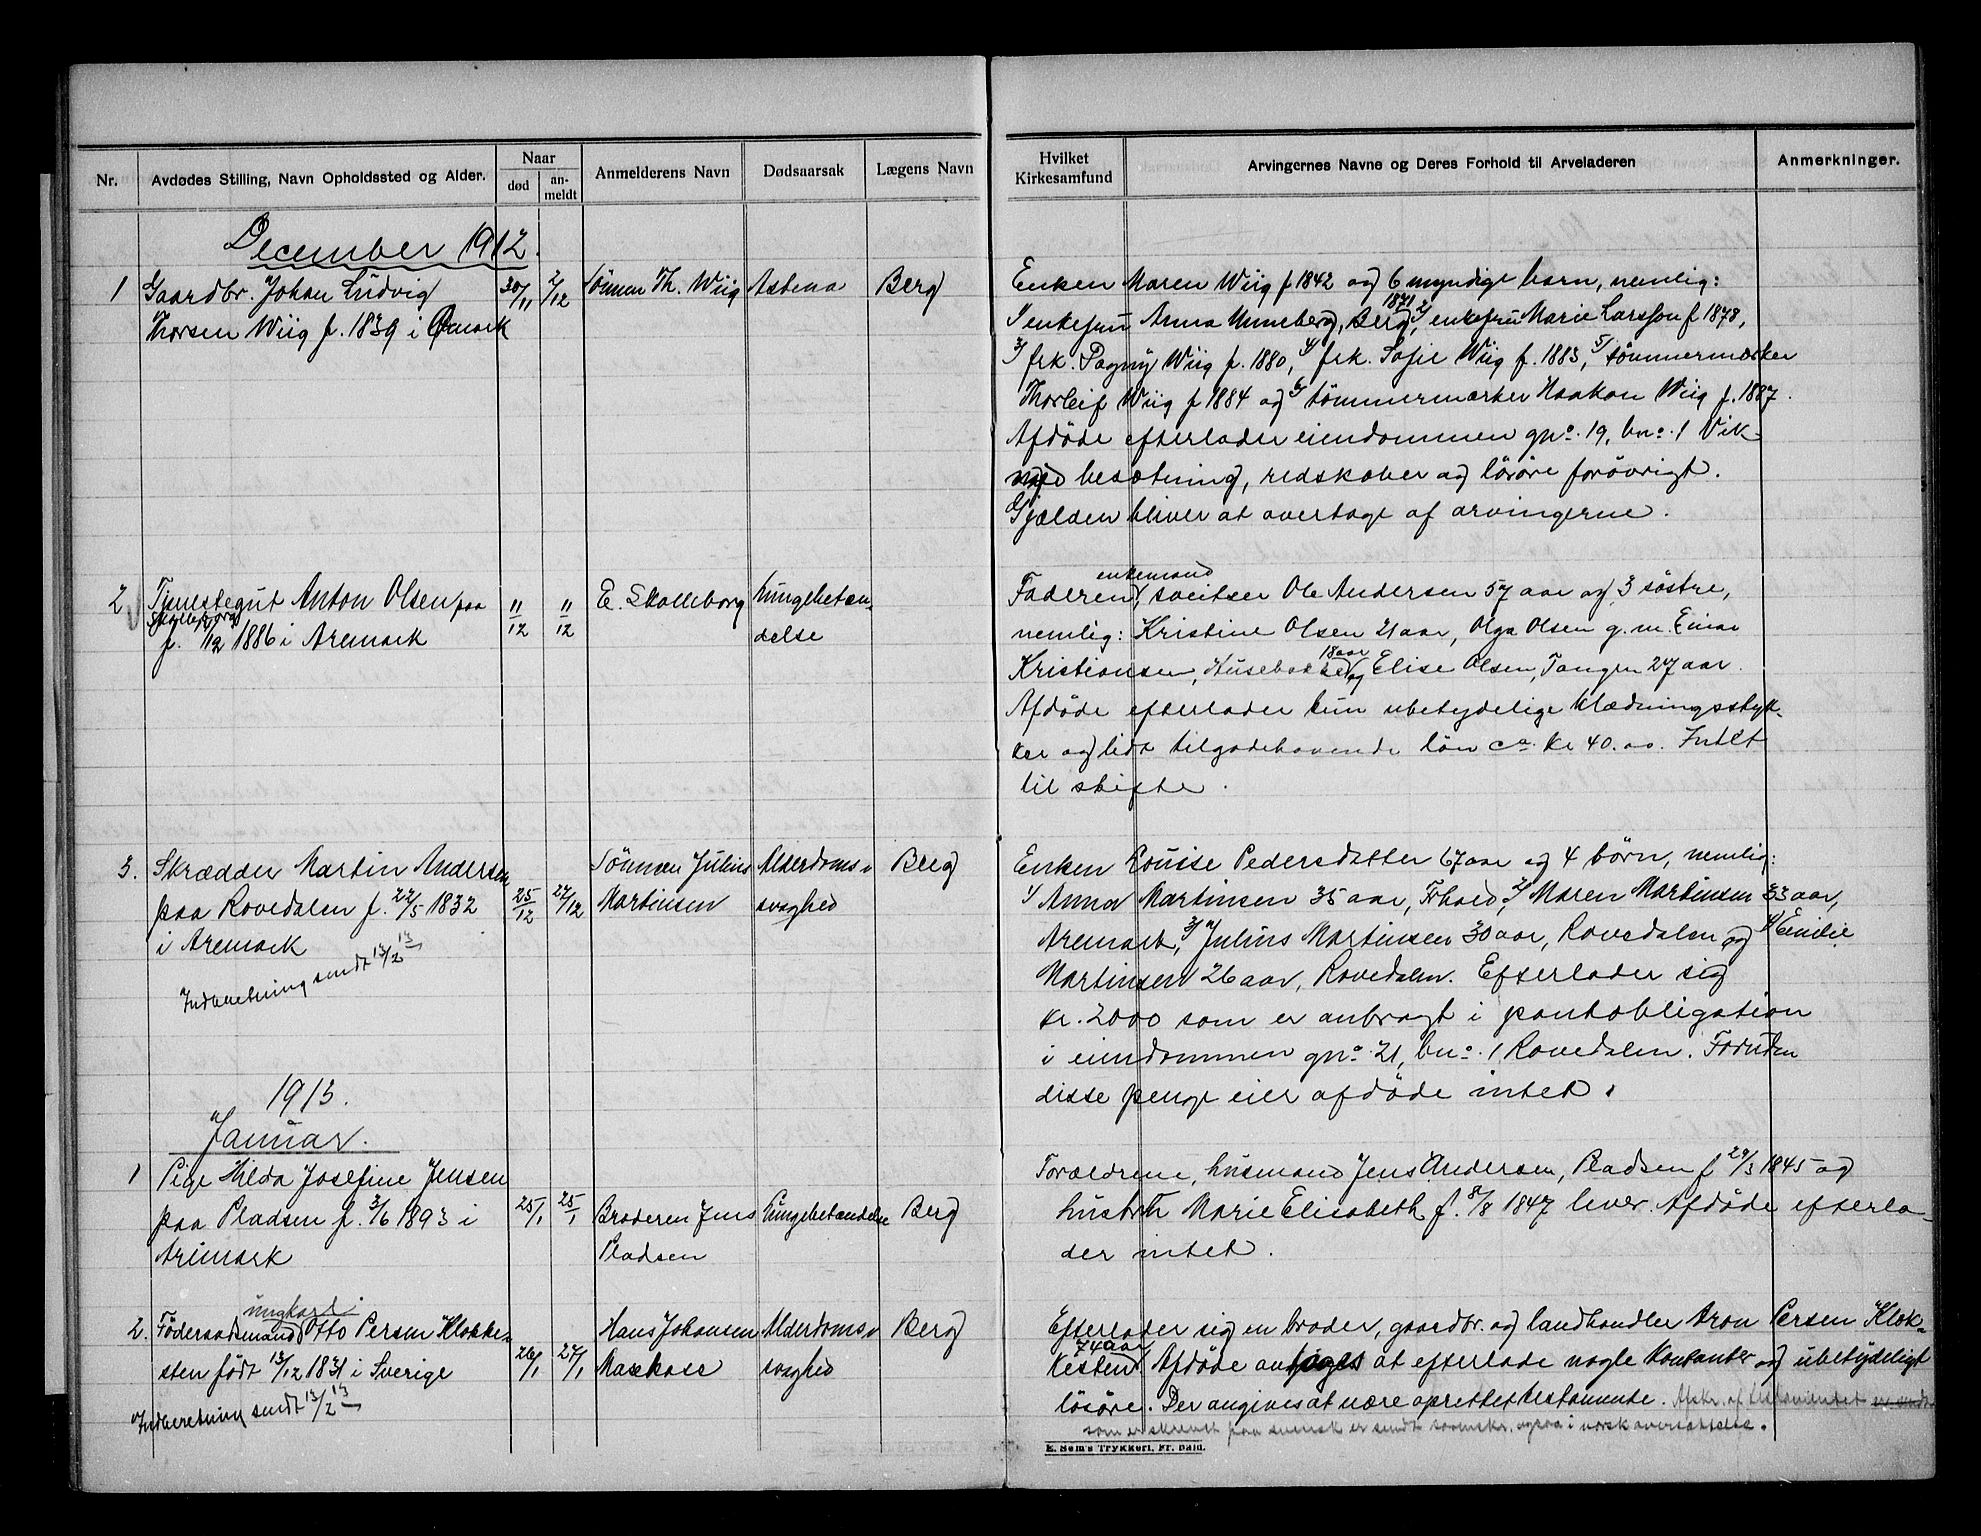 Nr.
Avdødes Stilling, Navn Opholdssted og Alder.
Naar
død
an-
meldt
Anmelderens Navn
Dødsaarsak
Lægens Navn
Hvilket
Kirkesamfund
Arvingernes Navne og Deres Forhold til Arveladeren
Anmerkninger.
December 1912.
1 Gaardbr. Johan Ludvig 30/11 2/12 Sønnen Th. Wiig Astma Berg
Thorsen Wiig f. 1839 i Ømark
Enken Maren Wiig f 1842 og 6 myndige barn, nemlig:
1/ enkefru Anna Unneberg, Berg, 1871 2/ enkefru Marie Larsson f 1878,
3/ frk. Dagny Wiig f. 1880, 4/ frk. Sofie Wiig f. 1883, 5/ tømmermærker
Thorleif Wiig f 1884 og 6/ tømmermærker Haakon Wiig f. 1887.
Afdøde efterlader eiendommen gno. 19, bno. 1 Vik
med besætning, redskaber og løsøre forøvrigt.
Gjælden bliver at overtage af arvingerne.
2 Tjenestegut Anton Olsen paa 11/12 11/12 E. Skolleborg Lungebetæn-
Skolleborg
f. 1886 i Aremark
delse
enkemand
Faderen, sveitser Ole Andersen 57 aar og 3 søstre,
nemlig: Kristine Olsen 21 aar, Olga Olsen g. m. Einar
Kristiansen, Husebakke 18 aar og Elise Olsen, Tangen 27 aar.
Afdøde efterlader kun ubetydelige klædningsstyk-
ker og lidt tilgodehavende løn ca. kr 40.00. Intet
til skifte.
3. Skrædder Martin Andersen 25/12 27/12 Sønnen Julius Alderdoms- Berg
paa Rovedalen f. 22/5 1832 Martinsen svaghed
i Aremark
Indberetning sendt 13/2 13
Enken Louise Pedersdatter 67 aar og 4 børn, nemlig:
1/ Anna Martinsen 35 aar, 2/ Maren Martinsen 33 aar,
Aremark, 3/ Julius Martinsen 30 aar, Rovedalen og 4/ Emilie
Martinsen 26 aar, Rovedalen. Efterlader sig
kr. 2000 som er anbragt i pantobligation
i eiendommen gno. 21, bno. 1 Rovedalen. Foruden
disse penge eier afdøde intet.
1913.
Januar.
1 Pige Hilda Josefine Jensen
paa Pladsen f. 3/6 1893 i 25/1 25/1 Broderen Jens Lungebetændelse Berg
Aremark Pladsen
Forældrene, husmand Jens Andersen, Pladsen f 29/3 1845 og
hustru Marie Elisabeth f. 8/8 1847 lever. Afdøde efterla-
der intet.
ungkarl
2. Føderaadsmand Otto Persen Klokke- 26/1 27/1 Hans Johansen Alderdoms- Berg
sten født 13/12 1831 i Sverige svaghed
Indberetning sendt 13/2 13
Efterlader sig en broder, gaardbr. og landhandler Aron Persen Klok-
kesten 74 aar. Afdøde antages at efterlade nogle kontanter og ubetydeligt
løsøre. Der angives at være oprettet testamente. Afskr. af testamentet er sendt
som er skrevet paa svensk er sendt sorenskr. ogsaa i norsk oversættelse.
E. Sem's Trykkeri, Fr. hald.